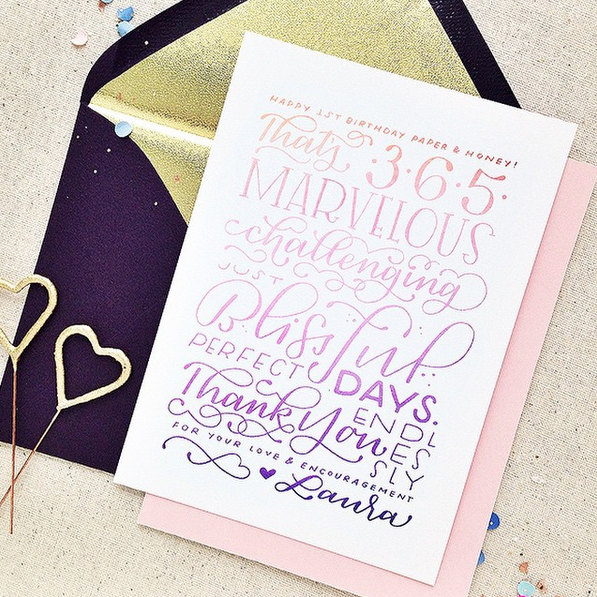 HAPPY 1ST BIRTHDAY PAPER & HONEY!
That's 3·6·5·
MARVELOUS
challenging
JUST
Blissful
PERFECT DAYS.
Thank You ENDL
ES
SLY
FOR YOUR LOVE & ENCOURAGEMENT
Laura